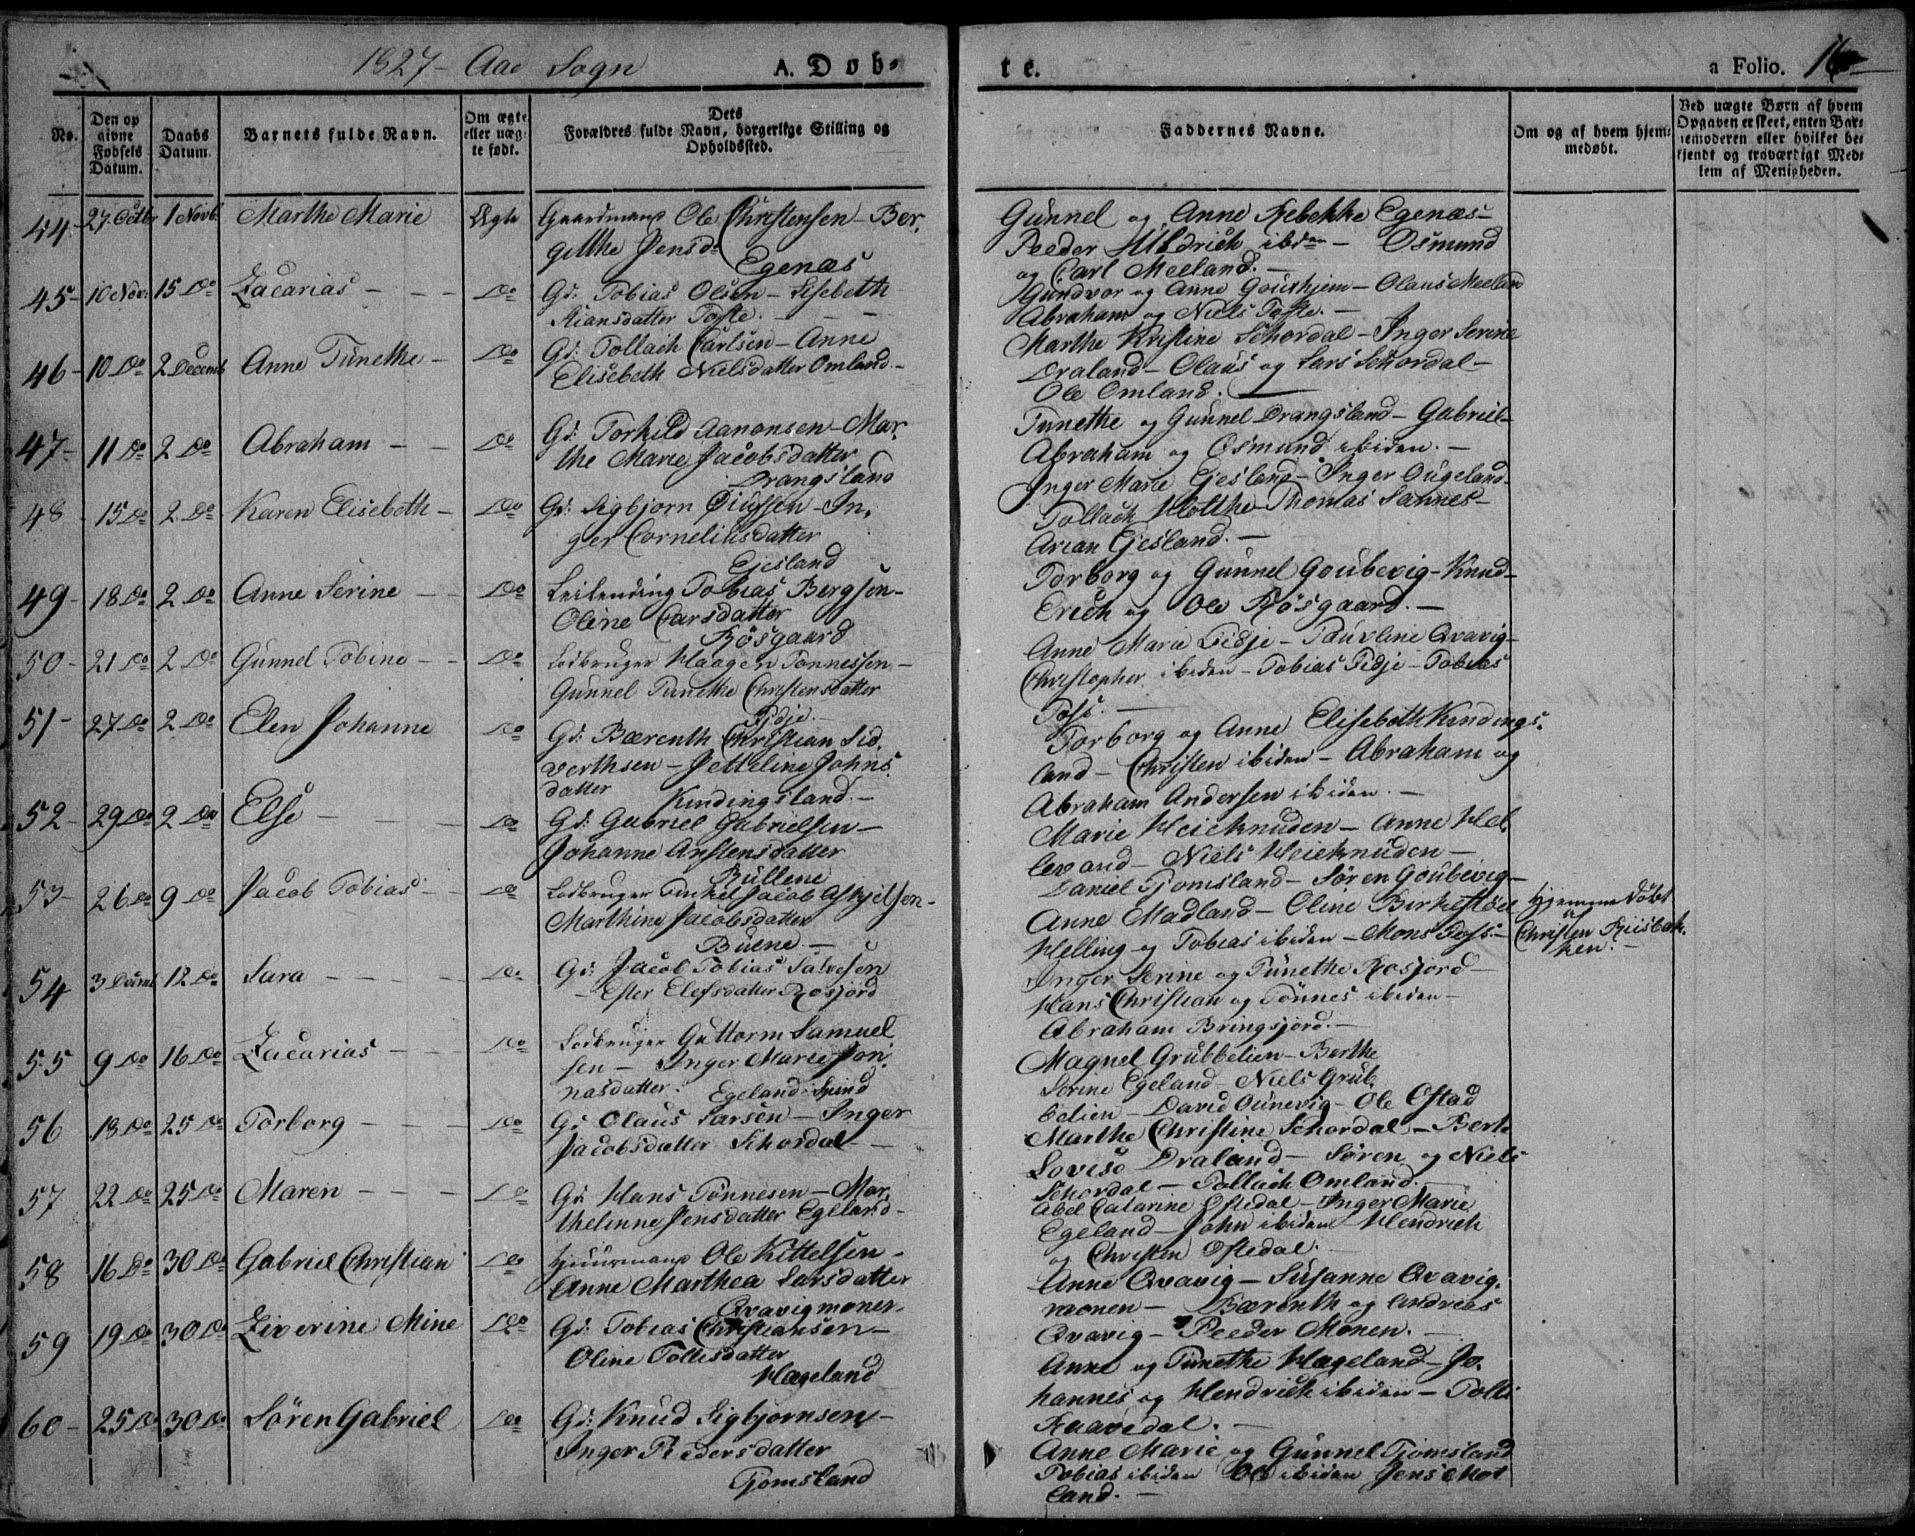 1827 - Aae Sogn
A. Døb-
te.
a Folio. 16
No.
Den op
givne
Fødsels
Datum.
Daabs
Datum.
Barnets fulde Navn.
Om ægte
eller uæg-
te født.
Dets
Forældres fulde Navn, borgerlige Stilling og
Opholdssted.
Faddernes Navne.
Om og af hvem hjem-
medøbt.
Ved uægte Børn af hvem
Opgaven er skeet, enten Bar-
nemoderen eller hvilket be-
kjendt og troværdigt Med-
lem af Menigheden.
44 - 27 Octbr 1 Novb. Marthe Marie Ægte Gaardmand Ole Christensen - Ber,
githe Jensd.
Egenæs
Gunnel og Anne Rebekke Egenæs -
Peeder Uldrich ibidem - Osmund
og Carl Meeland. -
45 - 10 Nov. 15 Do Zacarias - - - Do Gd: Tobias Olsen - Lisebeth
Stiansdatter Toste. - - -
Gundvor og Anne - Olaus Meeland
Abraham og Niels Toste. -
46 - 10 Do 2 Decemb Anne Tunethe - Do Gd: Tollach Carlsen - Anne
Elisebeth Nielsdatter Omland. -
Marthe Kristine Schordal - Inger Serine
Draland - Olaus og Lars Schordal -
Ole Omland. -
47 - 11 Do 2 Do Abraham - - Do Gd: Torkild Aanonsen - Mar,
the Marie Jacobsdatter
Drangsland
Tunethe og Gunnel Drangsland - Gabriel -
Abraham og Osmund ibiden. -
48 - 15 Do 2 Do Karen Elisebeth - Do Gd: Sigbjørn - In,
ger Corneliusdatter
Ejesland
Inger Marie Ejesland - Inger Ougeland -
Tollach Holthe - Thomas Sannes -
Arian Ejesland. -
49 - 18 Do 2 Do Anne Serine - - Do Leilending Tobias Bergsen -
Oline Larsdatter
Røsgaard
Torborg og Gunnel Goubevig - Knud -
Erich og Ole Røsgaard. -
50 - 21 Do 2 Do Gunnel Tobine - - Do Lodbruger Haagen Tønnessen -
Gunnel Tunethe Christensdatter
Fidje.
Anne Maria Fidje - Paurline Qvavig -
Christopher ibiden - Tobias Fidje - Tobias
Foss. -
51 - 27 Do 2 Do Elen Johanne Do Gd: Bærenth Christian Sid,
verthsen - Jetteline Johns,
datter Kindingsland. -
Torborg og Anne Elisebeth Kindings,
land - Christen ibiden - Abraham og
Abraham Andersen ibiden. -
52 - 29 Do 2 Do Else - - - Do Gd: Gabriel Gabrielsen -
Johanne Arstensdatter
Bullene
Marie Heieknuden - Anne Hel,
levand - Niels Heieknuden -
Daniel Tjomsland - Søren Goubevig -
53 - 26 Do 9 Do Jacob Tobias - - Do Lodbruger Jacob Askjelsen -
Marthine Jacobsdatter
Buene. -
Anne Madland - Oline Birkestøl
Helling og Tobias ibiden - Mons Foss. -
Hjemmedøbt
af
Christen Riisbak,
ken. -
54 3 Decmb 12 Do Sara - - Do Gd: Jacob Tobias Salvesen
- Ester Elefsdatter Rosfjord
Inger Serine og Tunethe Rosfjord -
Hans Christian og Tønnes ibiden -
Abraham Bringsjord. -
55 9 Do 16 Do Zacarias - - Do Lodbruger Guttorm Samuel,
sen - Inger Marie Jon,
nasdatter. Egeland i Spind
Magnel Grubbelien - Berthe
Serine Egeland - Niels Grub,
belien - David Ounevig - Ole Ofstad
56 18 Do 25 Do Torborg - - - Do Gd: Olaus Larsen - Inger
Jacobsdatter Schordal -
Marthe Christine Schordal - Berte
Lovise Draland - Søren og Niels
Schordal - Tollach Omland. -
57 22 Do 25 Do Maren - - - Do Gd: Hans Tønnesen - Mar,
thelinne Jensdatter Egeland -
Abel Catarine Oftedal - Inger Marie
Egeland - John ibiden Hendrich
og Christen Oftedal. -
58 16 Do 30 Do Gabriel Christian Do Huusmand Ole Kittelsen -
Anne Marthea Larsdatter
Qvavigmonen -
Anne Qvavig - Susanne Qvavig,
monen - Bærenth og Andreas
Qvavig - Peeder Monen. -
59 19 Do 30 Do Ziverine Mine Do Gd: Tobias Christiansen -
Oline Tollisdatter
Hægeland
Anne og Tunethe Hægeland - Jo,
hannes og Hendrich ibiden - Tolli
Raavedal. -
60 - 25 Do 30 Do Søren Gabriel Do Gd: Knud Sigbjørnsen -
Inger Peedersdatter
Tjomsland
Anne Marie og Gunnel Tjomsland
Tobias ibiden Ole ibiden Jens Mot
land. -